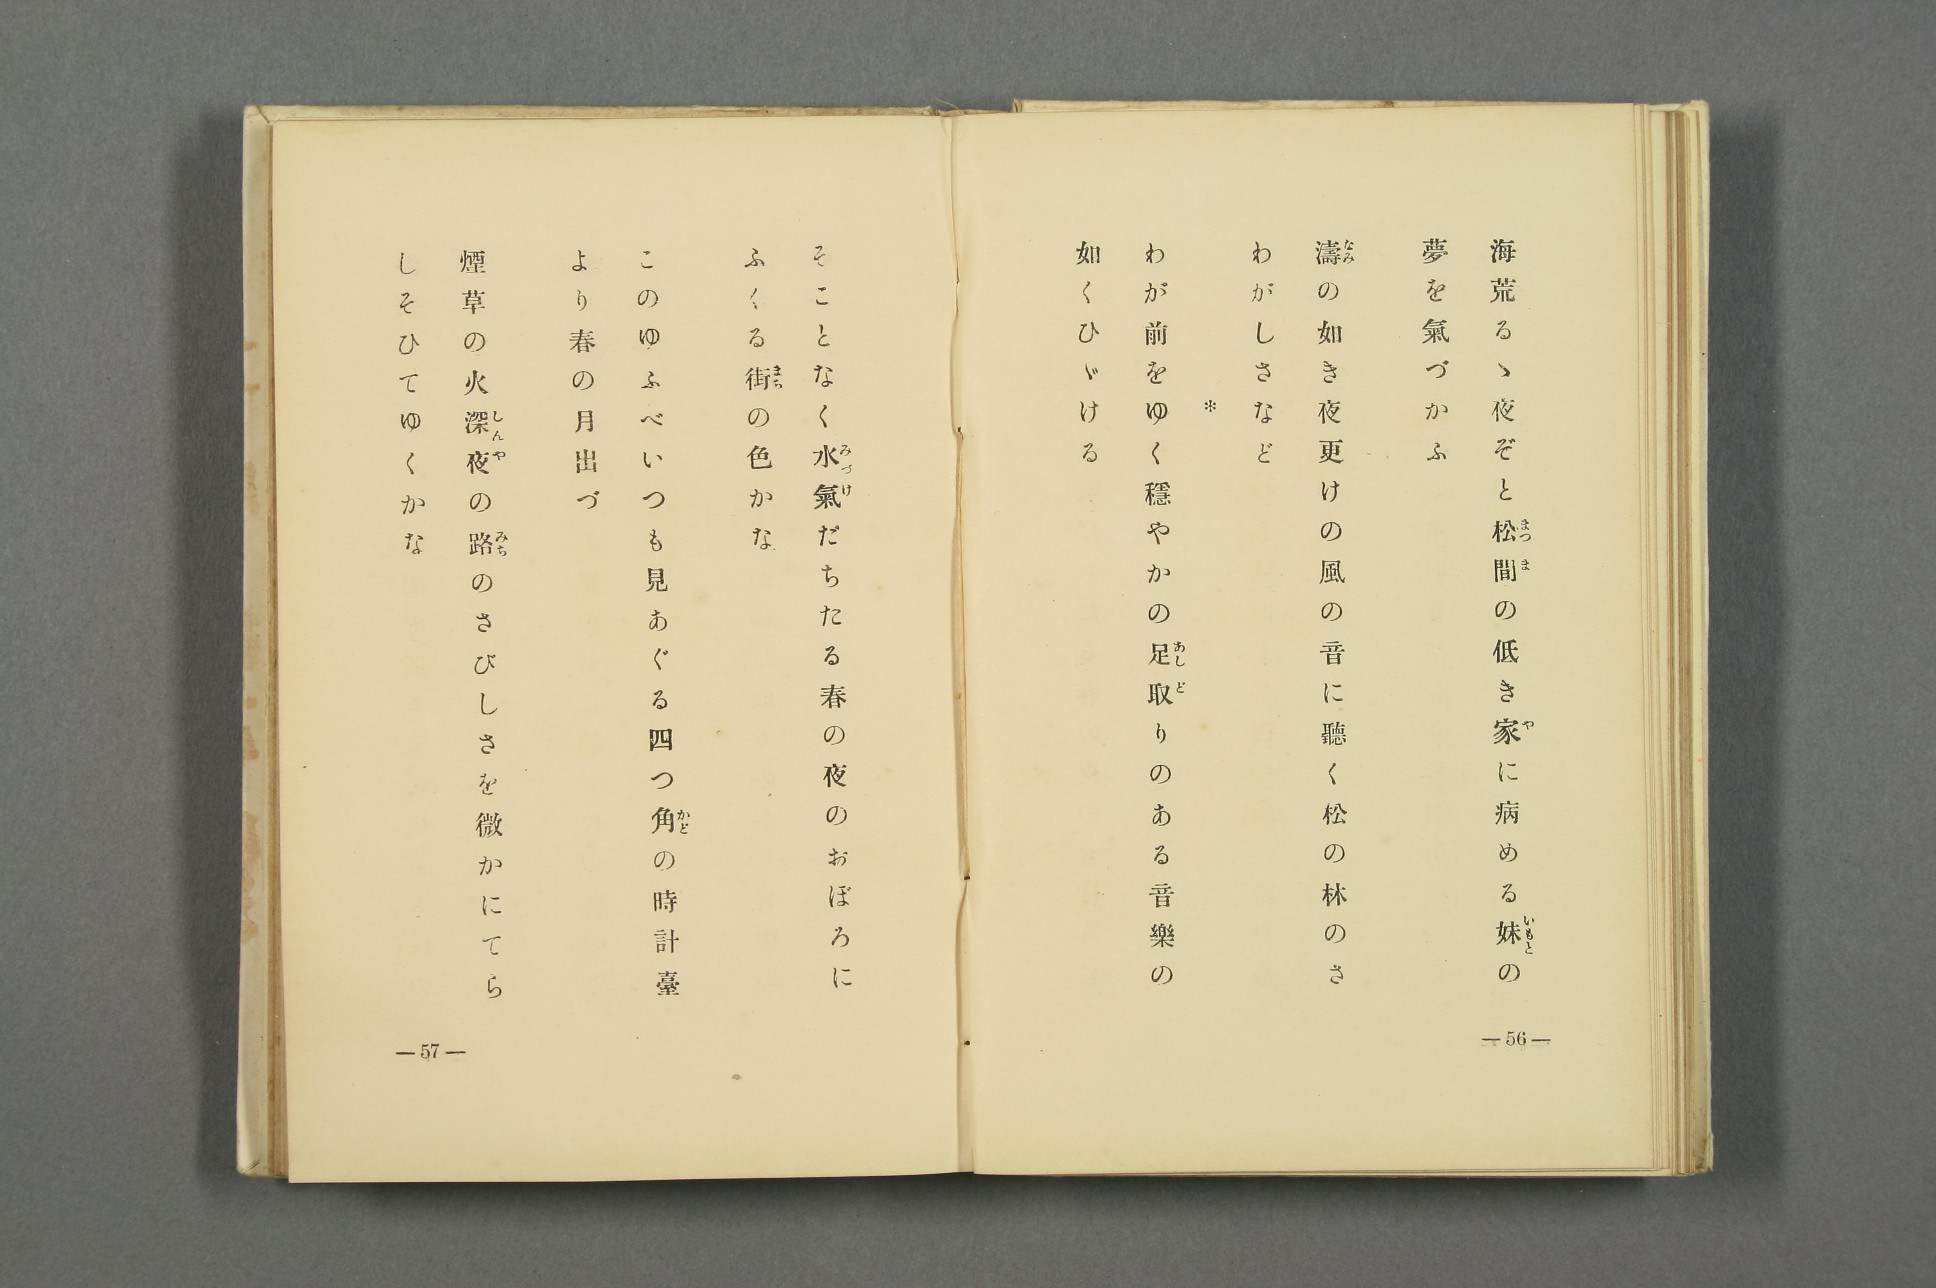 海荒るゝ夜ぞと松間の低き家に病める妹の
夢を氣づかふ
濤の如き夜更けの風の音に聽く松の林のさ
わがしさなど
＊
わが前をゆく穩やかの足取りのある音樂の
如くひゞける
—56—
そことなく水氣だちたる春の夜のおぼろに
ふくる街の色かな
このゆふべいつも見あぐる四つ角の時計臺
より春の月出づ
煙草の火深夜の路のさびしさを微かにてら
しそひてゆくかな
—57—